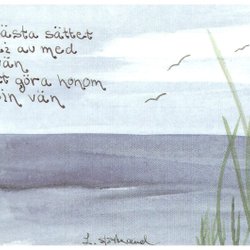 ästa sättet
av med
vän
tt göra honom
in vän